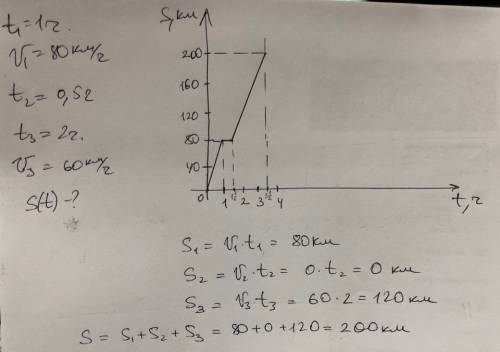 t₁=1г.
V₁=80км/г
t₂=0,5г
t₃=2г.
V₃=60км/г
S(t)-?
S,км
200
160
120
80
40
0
1 1½ 2 3 3½ 4
t,г
S₁ = V₁·t₁ = 80км
S₂ = V₂·t₂ = 0·t₂ = 0 км
S₃ = V₃·t₃ = 60·2 = 120км
S = S₁+S₂+S₃ = 80+0+120 = 200км